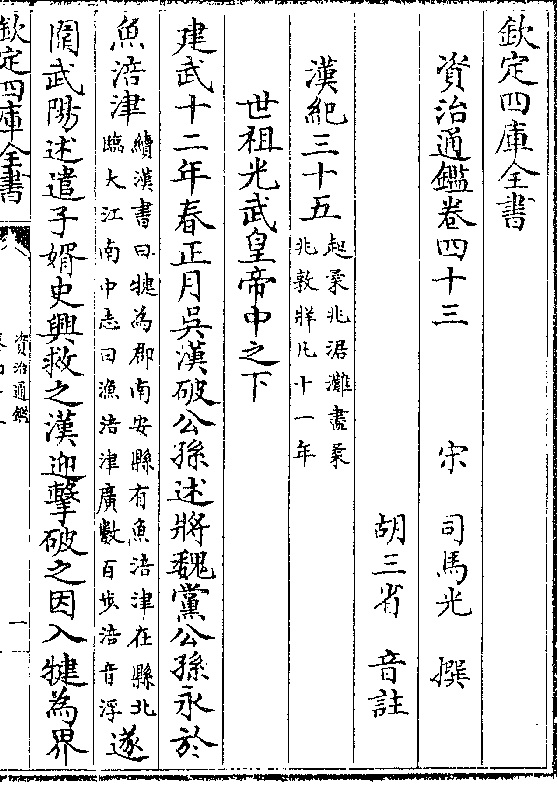 欽定四庫全書
資治通鑑卷四十三
宋 司馬光 撰
胡三省 音註
漢紀三十五 起柔兆涒灘盡柔兆敦牂凡十一年
世祖光武皇帝中之下
建武十二年春正月吳漢破公孫述將魏黨公孫永於
魚涪津 續漢書曰犍為郡南安縣有魚涪津在縣北臨大江南中志曰漁涪津廣數百步涪音浮 遂
圍武陽述遣子婿史興救之漢迎擊破之因入犍為界
欽定四庫全書
資治通鑑
一